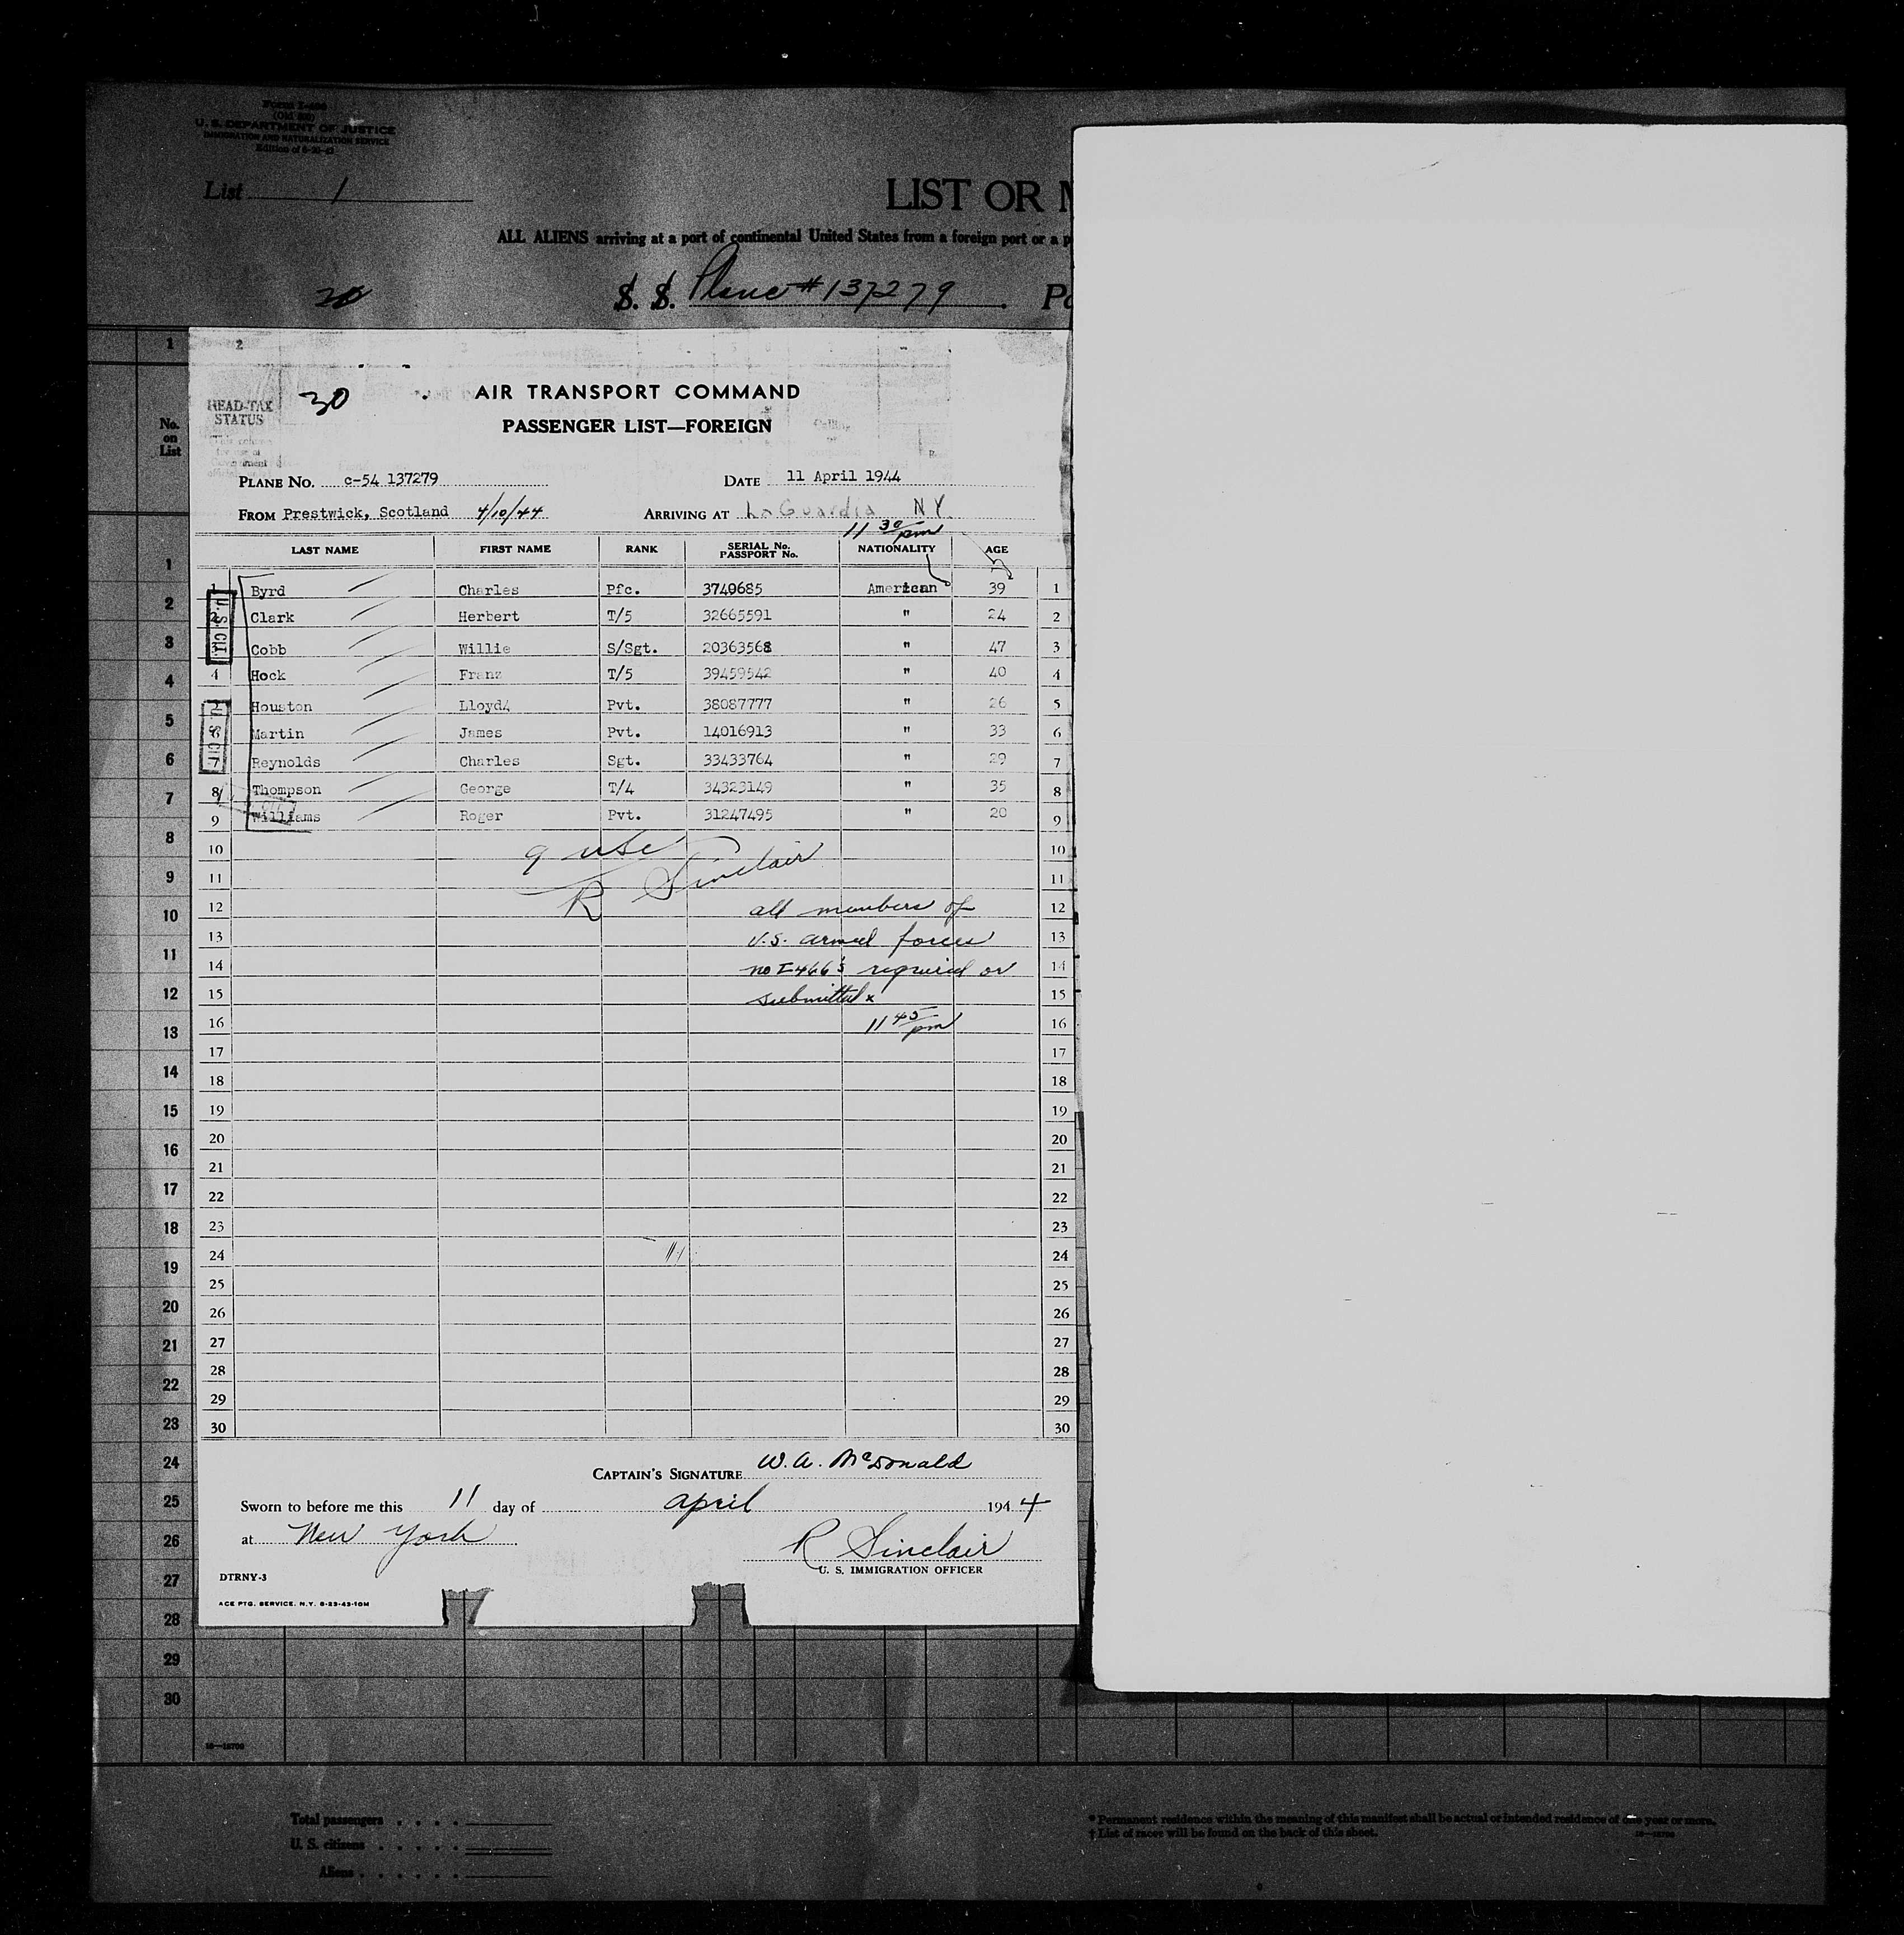 Form I-466
(Old 500)
U. S. DEPARTMENT OF JUSTICE
IMMIGRATION AND NATURALIZATION SERVICE
List 1
LIST OR
ALL ALIENS arriving at a port of continental United States from a foreign port or a
S. S. Plane # 137279
1 2
HEAD-TAX
STATUS
30
AIR TRANSPORT COMMAND
PASSENGER LIST—FOREIGN
No.
on
List
PLANE NO. c-54 137279 DATE 11 April 1944
FROM Prestwick, Scotland 4/10/44 ARRIVING AT LaGuardia N Y.
11 30 pm
LAST NAME FIRST NAME RANK SERIAL No. PASSPORT No. NATIONALITY AGE
1 Byrd Charles Pfc. 3740685 American 39 1
2 Clark Herbert T/5 32665591 " 24 2
3 Cobb Willie S/Sgt. 20363568 " 47 3
4 Hock Franz T/5 39459542 " 40 4
5 Houston Lloyd Pvt. 38087777 " 26 5
6 Martin James Pvt. 14016913 " 33 6
7 Reynolds Charles Sgt. 33433764 " 29 7
8 Thompson George T/4 34323149 " 35 8
9 Williams Roger Pvt. 31247495 " 20 9
U. S. CIT.
U. S. CIT.
10 9 USC 10
11 R Sinclair 11
12 all members of 12
13 U.S. armed forces 13
14 no I-466's required or 14
15 submitted x 15
16 11 45 pm 16
17 17
18 18
19 19
20 20
21 21
22 22
23 23
24 24
25 25
26 26
27 27
28 28
29 29
30 30
CAPTAIN'S SIGNATURE W. A. McDonald
Sworn to before me this 11 day of April 194 4
at New York R Sinclair
U. S. IMMIGRATION OFFICER
DTRNY-3
ACE PTG. SERVICE. N.Y. 8-23-43-10M
1
2
3
4
5
6
7
8
9
10
11
12
13
14
15
16
17
18
19
20
21
22
23
24
25
26
27
28
29
30
Total passengers
U. S. citizens
Aliens
* Permanent residence within the meaning of this manifest shall be actual or intended residence of one year or more.
† List of races will be found on the back of this sheet.